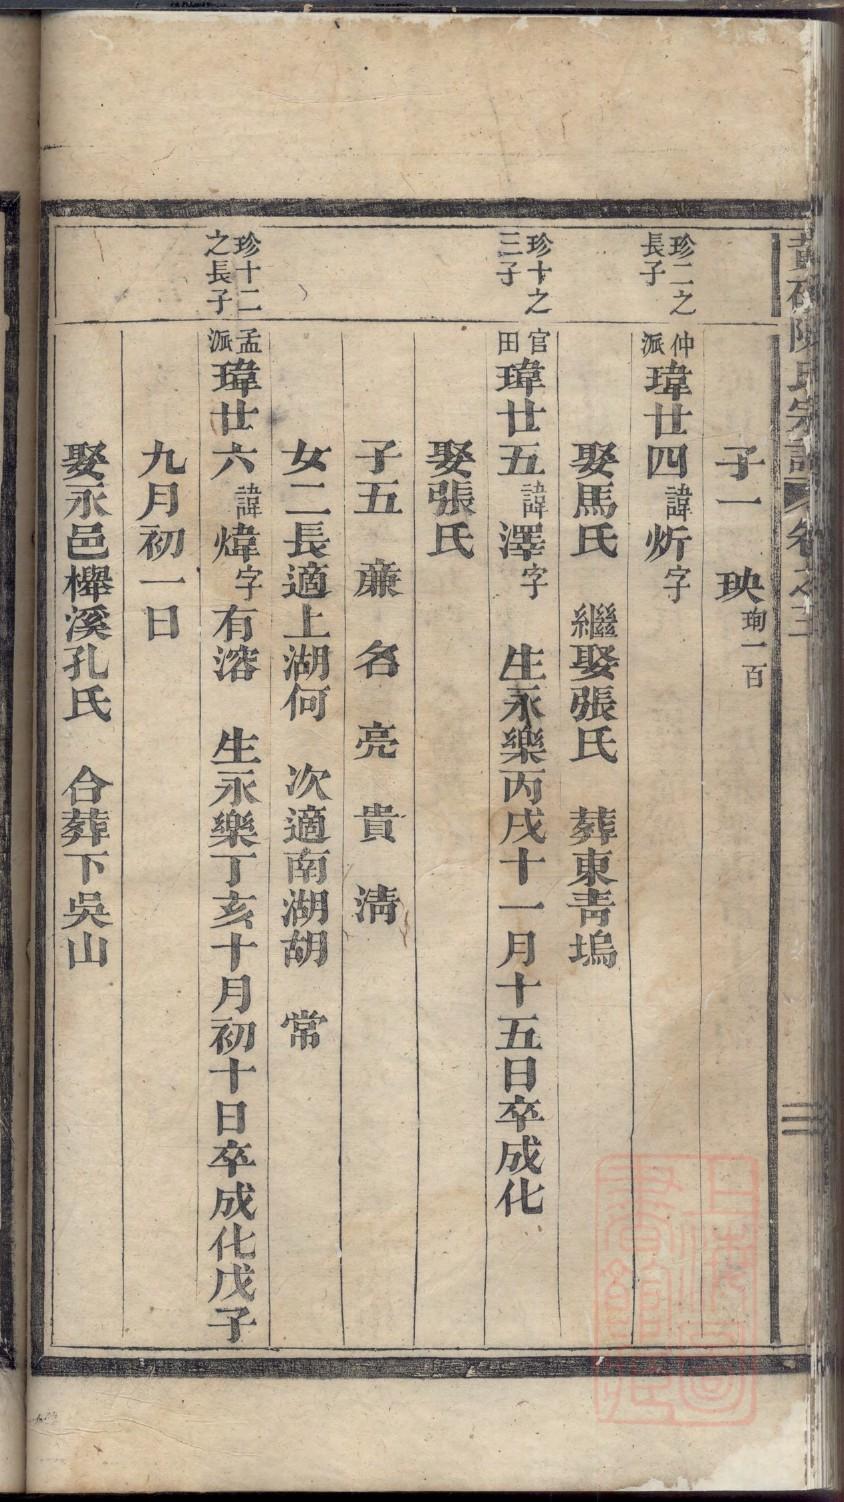 陳氏宗譜 卷之三
子一 瑛珣一百
珍二之長子
仲派瑋廿四諱炘字
娶馬氏 繼娶張氏 葬東靑塢
珍十之三子
官田瑋廿五諱澤字 生永樂丙戌十一月十五日卒成化
娶張氏
子五 亷 名 亮 貴 淸
女二長適上湖何 次適南湖胡 常
珍十二之長子
孟派瑋廿六諱煒字有溶 生永樂丁亥十月初十日卒成化戊子
九月初一日
娶永邑櫸溪孔氏 合葬下吳山